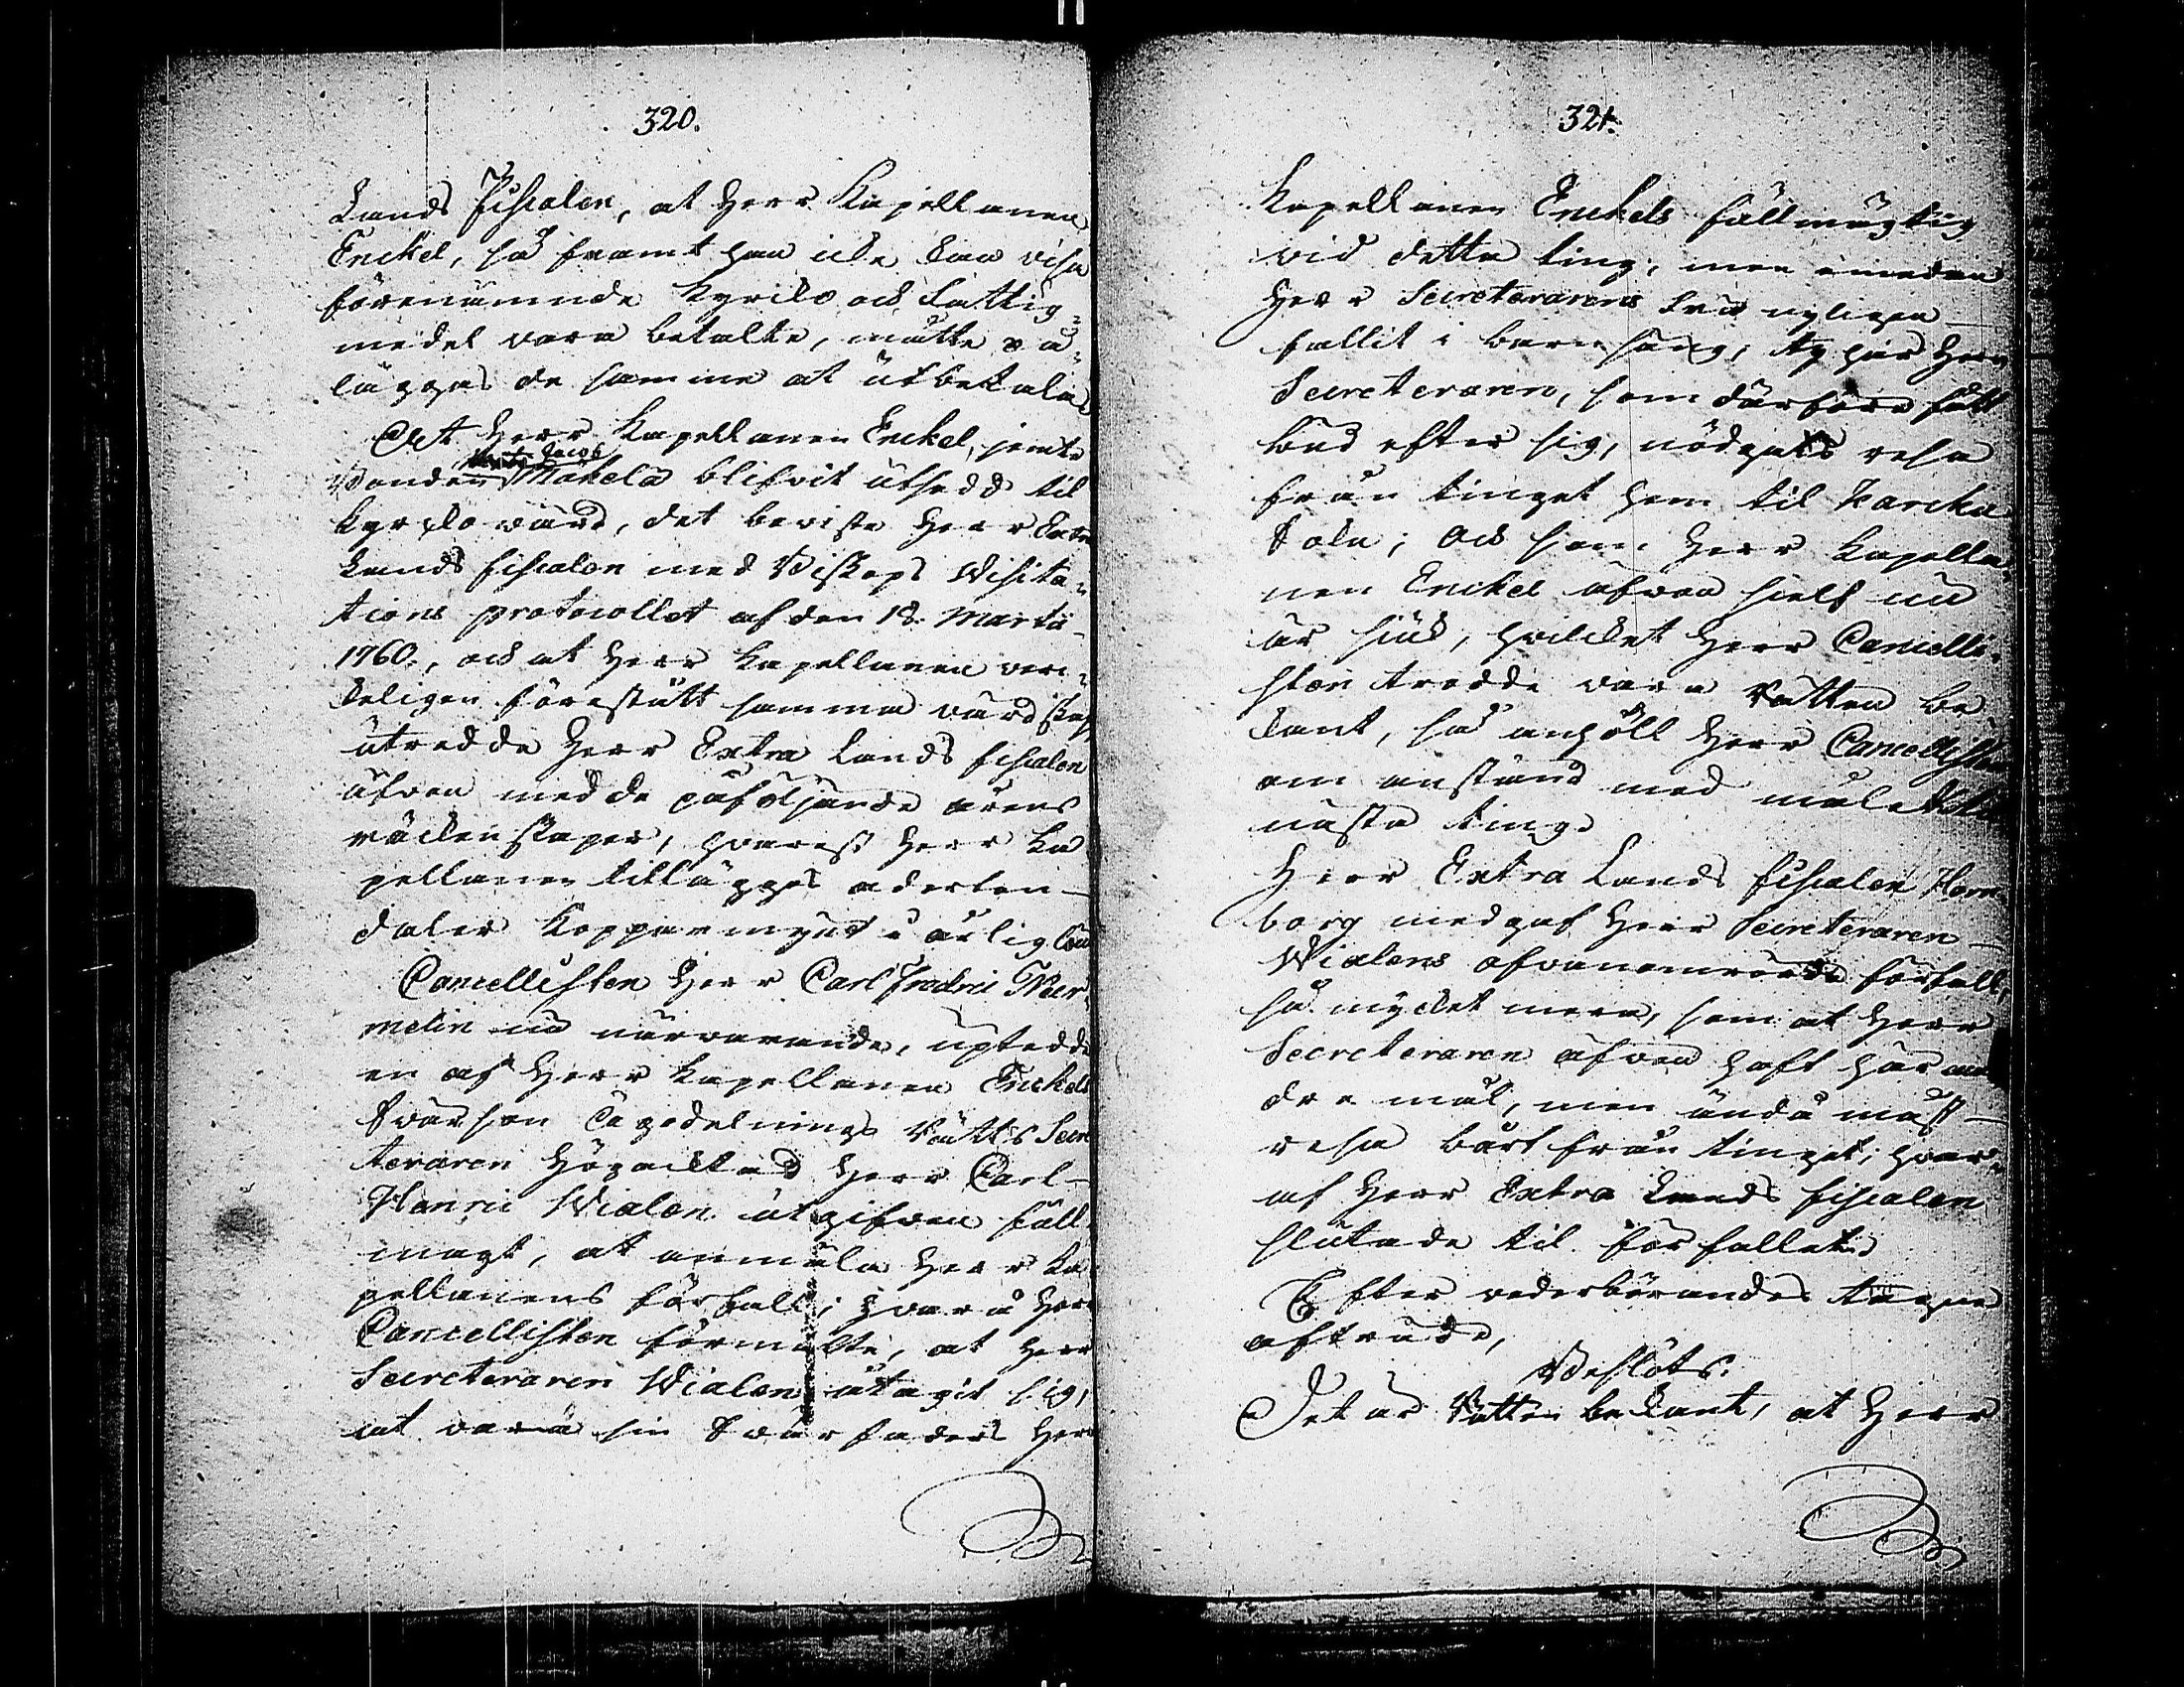 320.
Lands Fiscalen, at Herr Kapellanen
Enckel, så framt han icke kan visa
förenämnde Kyrcko och fattig-
medel vara betalte, måtte på-
läggas de samme at utbetala.
At Herr Kapellanen Enckel, jemte
Jacob
Bonden Mäkelä blifvit utsedd til
kyrckovärd, det beviste Herr Extra
Lands fiscalen med Biskops Visita-
tions protocollet af den 18. Martii
1760., och at Herr Kapellanen verc-
keligen förestått samma värdskap
utredde Herr Extra Lands fiscalen
äfven med de påföljande årens
räckenskaper, hvarest Herr Ka
pellanen tillägges aderton
daler Kopparmynt i årlig lön
Cancellisten Herr Carl Fredric
melin nu närvarande, uptedde
en af Herr Kapellanen Enckels
Svärson Lagdelnings Rätts Secre
teraren Högacktad Herr Carl
Henric Wialen utgifven full-
magt, at anmäla Herr Ka
pellanens förfall; hvarå Herr
Cancellisten förmälte, at Herr
Secreteraren Wialen åtagit sig,
at vara sin Svärfaders Herr
321.
Kapellanen Enckels fullmägtig
vid detta ting, men emedan
Herr Secreterarens Fru nyligen
fallit i barnsäng, ty har Herr
Secreteraren, som därföre fått
bud efter sig, nödgats resa
från tinget hem til Karcku
Sokn; och som Herr Kapella-
nen Enckel äfven sielf nu
är siuk, hvilcket Herr Cancelli-
sten trodde vara Rätten be
kant, så anhöll Herr Cancellisten
om anstånd med målet til
nästa ting.
Herr Extra Lands fiscalen Horn
borg medgaf Herr Secreteraren
Wialens ofvananmärde förfall,
så mycket mera, som at Herr
Secreteraren äfven haft här an
dra mål, men ändå måst
resa bårt från tinget; hvar-
af Herr Extra Lands fiscalen
slutade til förfallet.
Efter vederbörandes tagne
afträde,
Beslöts:
Det är Rätten bekant, at Herr